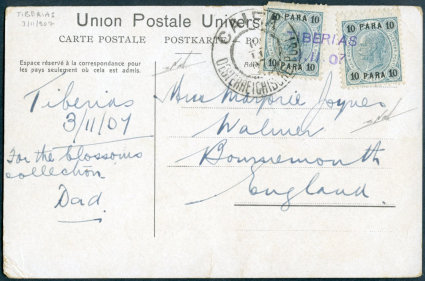 TIBERIAS
3/11/1907
Union Postale Univers
CARTE POSTALE POSTKARTE PO
Espace réservé à la correspondance pour
les pays seulement où cela est admis.
10 PARA 10
10 PARA 10
10 PARA 10
10 PARA 10
TIBERIAS
/II 07
OESTERREICHISCHE
Tiberias
3/11/07
For the blossoms
collection
Dad
Miss Marjorie Joynes
Walmer
Bournemouth
England.